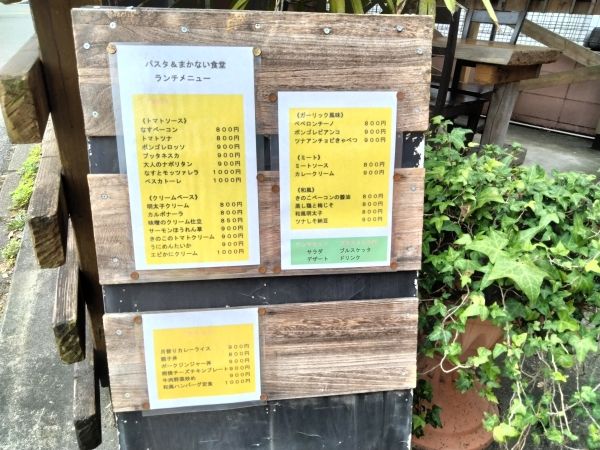 パスタ&まかない食堂
ランチメニュー
《トマトソース》
なすベーコン 800円
トマトツナ 800円
ボンゴレロッソ 900円
プッタネスカ 900円
大人のナポリタン 900円
なすとモッツァレラ 1000円
ペスカトーレ 1000円
《クリームベース》
明太子クリーム 800円
カルボナーラ 800円
味噌のクリーム仕立 850円
サーモンほうれん草 900円
きのこのトマトクリーム 900円
うにめんたいか 900円
エビかにクリーム 1000円
《ガーリック風味》
ペペロンチーノ 800円
ボンゴレビアンコ 900円
ツナアンチョビきゃべつ 900円
《ミート》
ミートソース 800円
カレークリーム 900円
《和風》
きのこベーコンの醤油 800円
蒸し鶏と梅じそ 900円
和風明太子 800円
ツナしそ納豆 900円
サラダ ブルスケッタ
デザート ドリンク
月替りカレーライス 900円
親子丼 800円
ポークジンジャー丼 900円
明積チーズチキンプレート 900円
牛肉野菜炒め 900円
和風ハンバーグ定食 1000円